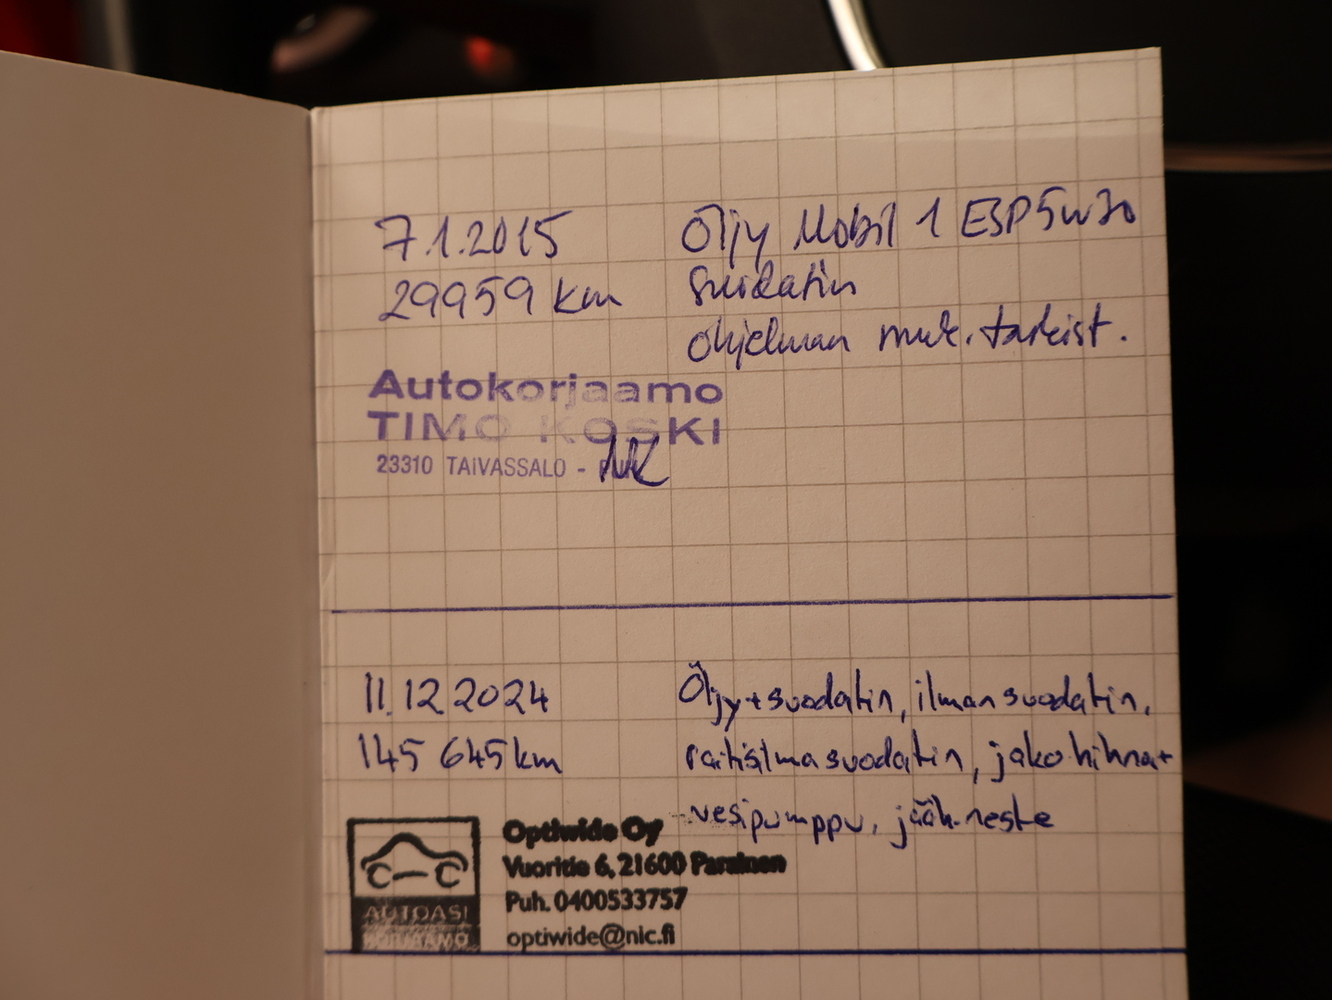 7.1.2015
29959 km
Öljy Mobil 1 ESP 5w30
Suodatin
ohjelman muk. tarkist.
Autokorjaamo
TIMO KOSKI
23310 TAIVASSALO -
11.12.2024
145 645 km
Öljy+suodatin, ilmansuodatin,
raitisilmasuodatin, jakohihna+
vesipumppu, jääh.neste
AUTOASI
KORJAAMO
Optiwide Oy
Vuoritie 6, 21600 Parainen
Puh. 0400533757
optiwide@nic.fi